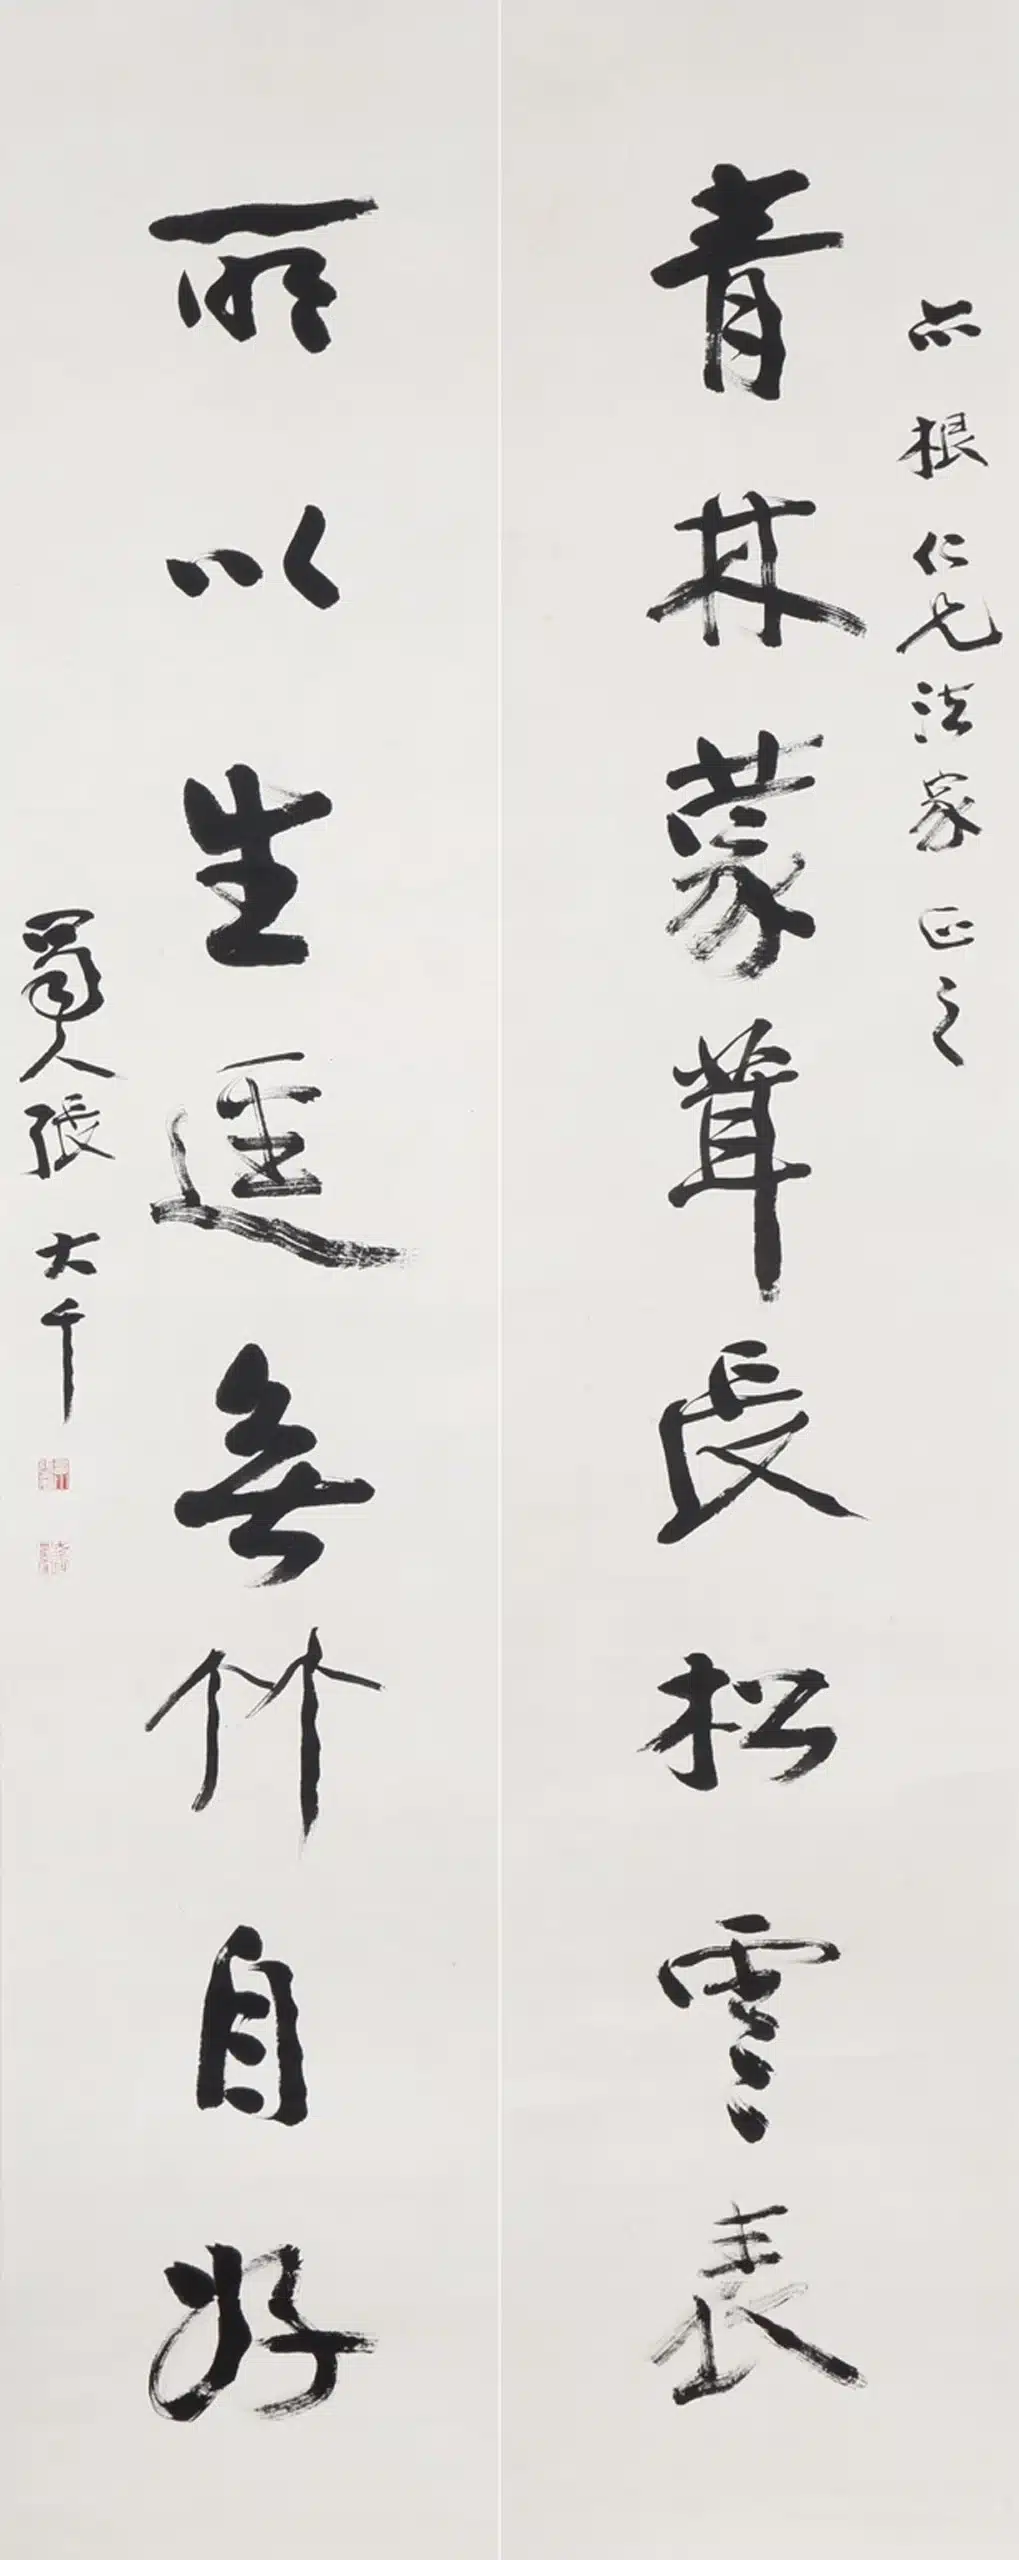 根仁兄法家正之
青林蒙茸長松雲表
所以生逕無竹自好
蜀人張大千